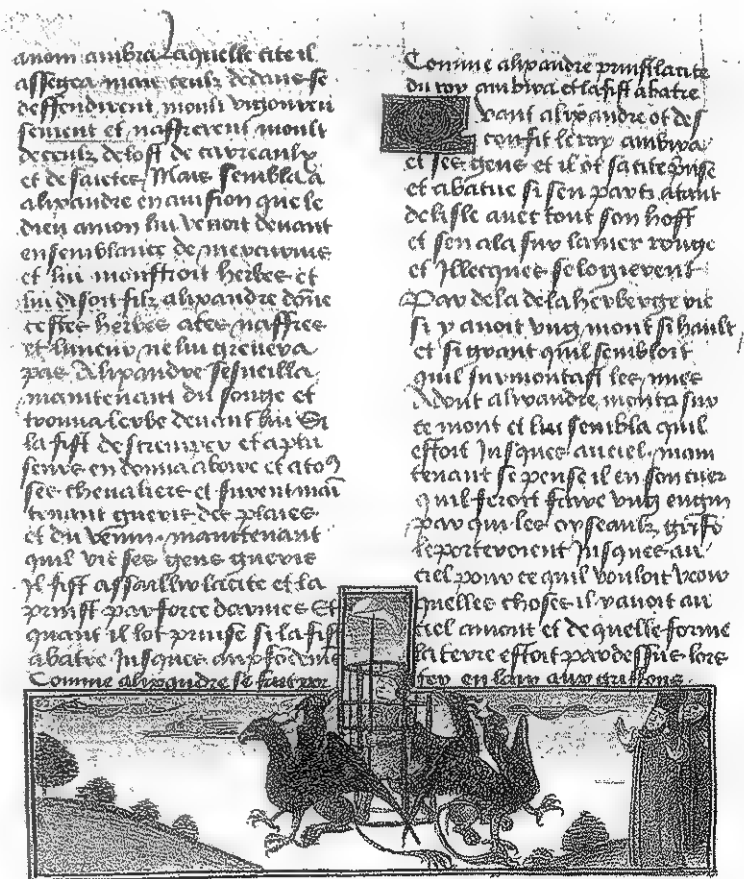 auoit ambira Laquelle cite il
assegea mais ceulz dedans se
deffendirent moult vigoureu
sement et naffrerent moult
de ceulz de lost de carreaulx
et de saietes Mais sembla a
alixandre en auision que le
dieu amon lui venoit deuant
en semblance de mercurius
et lui monstroit herbes et
lui disoit filz alixandre döne
cestes herbes a tes naffres
et ne lui greuera
pas Alixandre sesueilla
maintenant du songe et
trouua lerbe deuant lui Si
la fist destremper et a plu
seurs en donna a boire et a to9
ses cheualiers et furent mai
tenant gueris des plaies
et du venin maintenant
quil vit ses gens gueris
Il fist assaillir la cite et la
prinst par force darmes Et
quant il lot prinse si la fist
abatre Jusques au
Comme alixandre se faisoit
Comme alixandre prinst la cite
du roy ambira et la fist abatre
vant alixandre ot des
confit le roy ambira
et ses gens et il ot sa cite prise
et abatue si sen parti atant
de lisle auec tout son host
et sen ala sur la mer rouge
et Illecques se logierent
Par dela de la herberge rie
si y auoit vng mont si hault
et si grant quil sembloit
quil surmontast les nues
Adont alixandre monta sur
ce mont et lui sembla quil
estoit Jusques au ciel main
tenant se pense il en son cuer
quil feroit faire vng engin
par qui les oyseaulz grifõ
le porteroient Jusques au
ciel pour ce quil vouloit veoir
quelles choses il y auoit au
ciel amont et de quelle forme
la terre estoit par dessus lors
en lair aux griffons